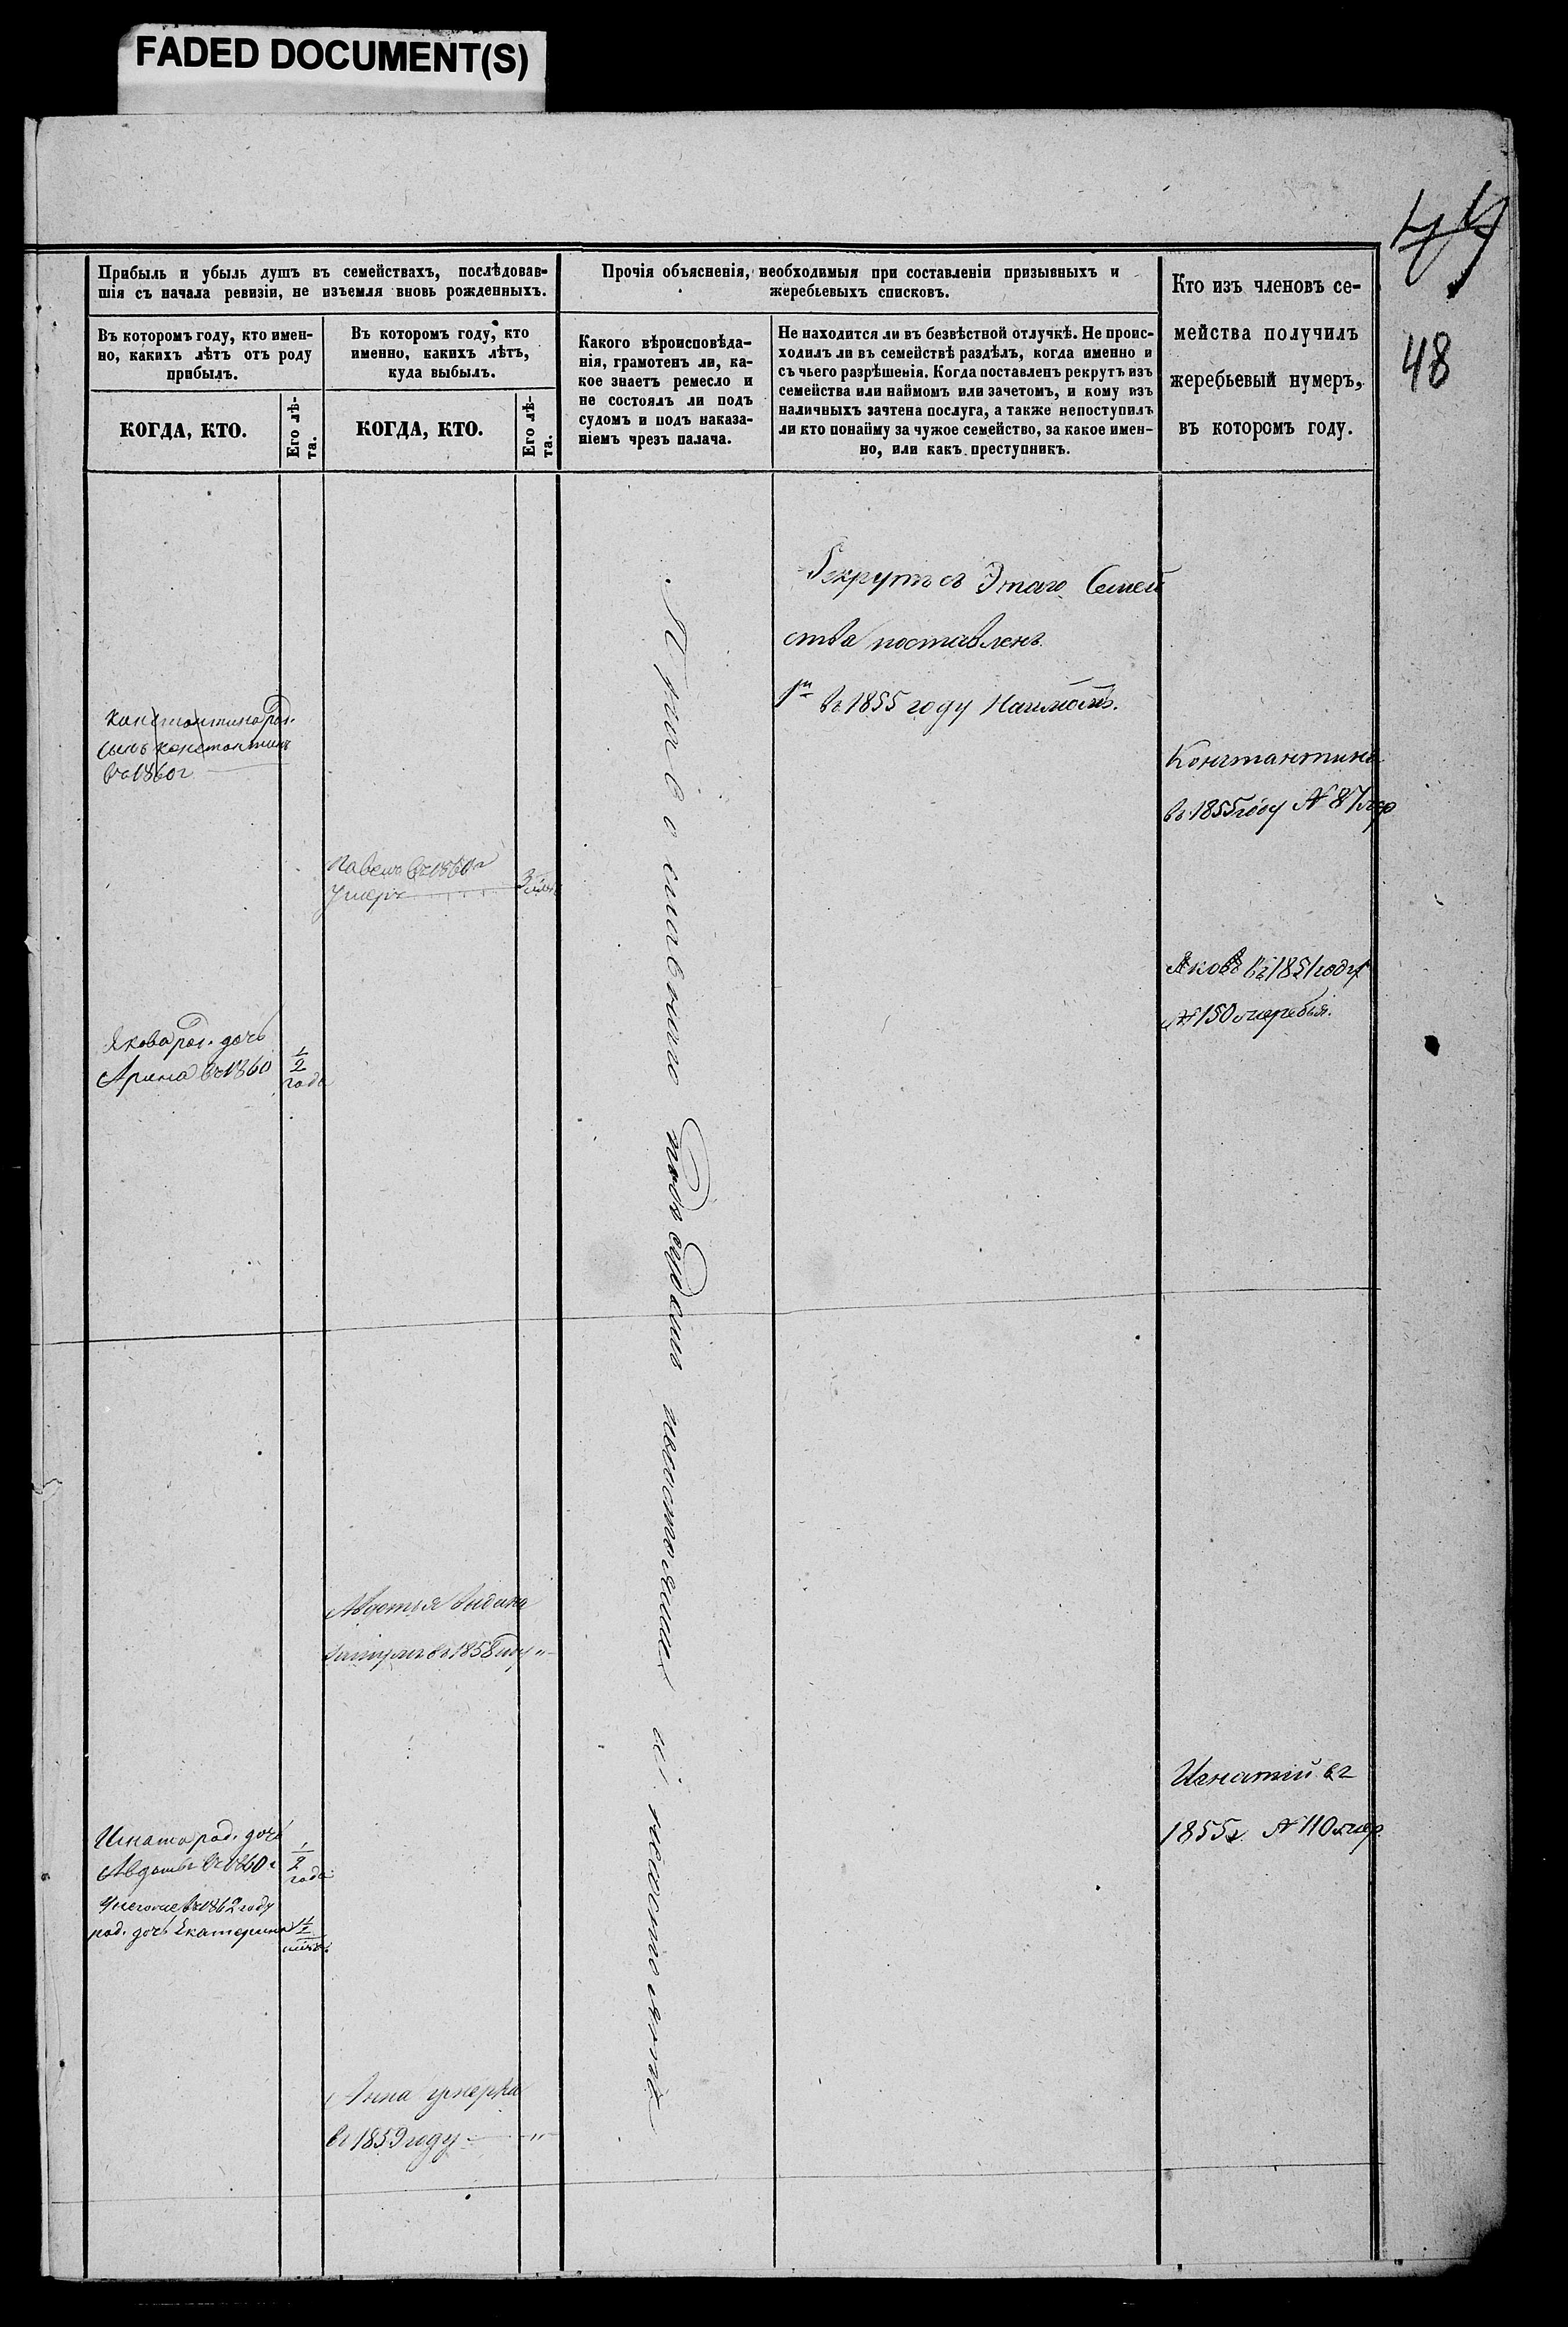 FADED DOCUMENT(S)
49
48
Прибыль и убыль душъ въ семействахъ, послѣдовав-
шія съ начала ревизіи, не изъемля вновь рожденныхъ.
Прочія объясненія, необходимыя при составленіи призывныхъ и
жеребьевыхъ списковъ.
Кто изъ членовъ се-
мейства получилъ
жеребьевый нумеръ,
въ которомъ году.
Въ которомъ году, кто имен-
но, какихъ лѣтъ отъ роду
прибылъ.
Въ которомъ году, кто
именно, какихъ лѣтъ,
куда выбылъ.
Какого вѣроисповѣда-
нія, грамотенъ ли, ка-
кое знаетъ ремесло и
не состоялъ ли подъ
судомъ и подъ наказа-
ніемъ чрезъ палача.
Не находится ли въ безвѣстной отлучкѣ. Не проис-
ходилъ ли въ семействѣ раздѣлъ, когда именно и
съ чьего разрѣшенія. Когда поставленъ рекрутъ изъ
семейства или наймомъ или зачетомъ, и кому изъ
наличныхъ зачтена послуга, а также непоступилъ
ли кто понайму за чужое семейство, за какое имен-
но, или какъ преступникъ.
КОГДА, КТО.
Его лѣ-
та.
КОГДА, КТО.
Его лѣ-
та.
Рекрутъ съ Этаго Семей
ства поставленъ
1й въ 1855 году
Константина Род.
сынъ Константинъ
въ 1860г
Константинъ
въ 1855 году № 87 жер
Павелъ въ 1860г
умеръ
3
Яковъ въ 1851 году
№ 150 жеребья.
Якова род. дочь
Арина въ 1860
1/2
года
православнаго подъ судомъ несостояли
Авдотья выдана
замужъ въ 1858 году "
Игнатій въ
1855г. № 110 жер
Игната род. дочь
Авдотья въ 1860 г
1/2
года
Унегоже въ 1862 году
род. дочь Екатерина
Анна умерла
въ 1859 году "